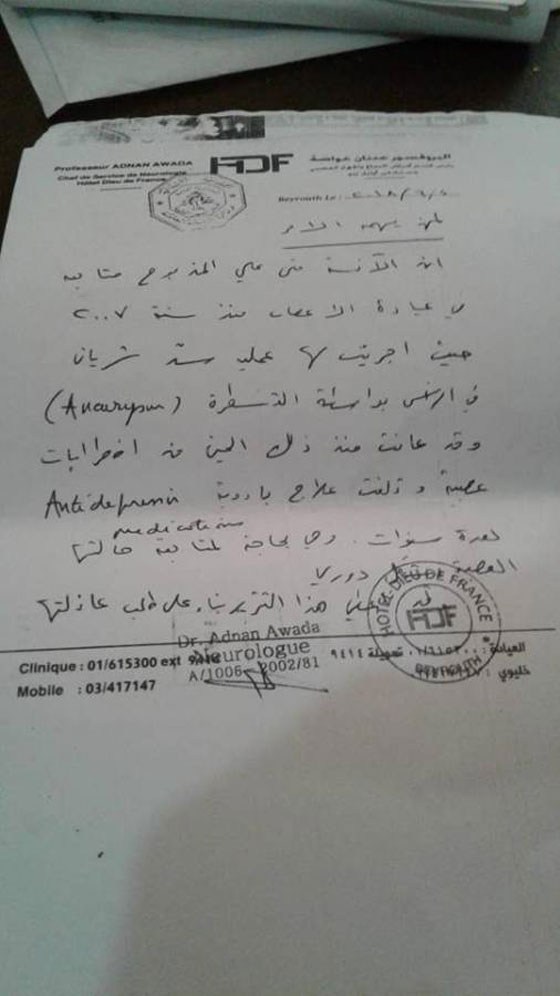 Professeur ADNAN AWADA
Chef de Service de Neurologie
Hôtel Dieu de France
HDF
البروفسور عدنان عواضة
Beyrouth Le :
لمن يهمه الامر
ان الآنسة منى علي المذبوح متابعة
في عيادة الاعصاب منذ سنة ٢٠٠٧
حيث اجريت لها عملية سد شريان
في الرأس بواسطة القسطرة (Aneurysm)
وقد عانت منذ ذلك الحين من اضطرابات
عصبية و تلقت علاج بادوية Antidepressin
medications
لعدة سنوات. وهي بحاجة لمتابعة حالتها
العصبية دوري
هذا التقرير بناء على طلب عائلتها
HOTEL-DIEU DE FRANCE
HDF
BEYROUTH
Dr. Adnan Awada
Neurologue
A/1006 2002/81
Clinique : 01/615300 ext 9414
Mobile : 03/417147
العيادة : ٠١/٦١٥٣٠٠ تحويلة ٩٤١٤
خليوي :